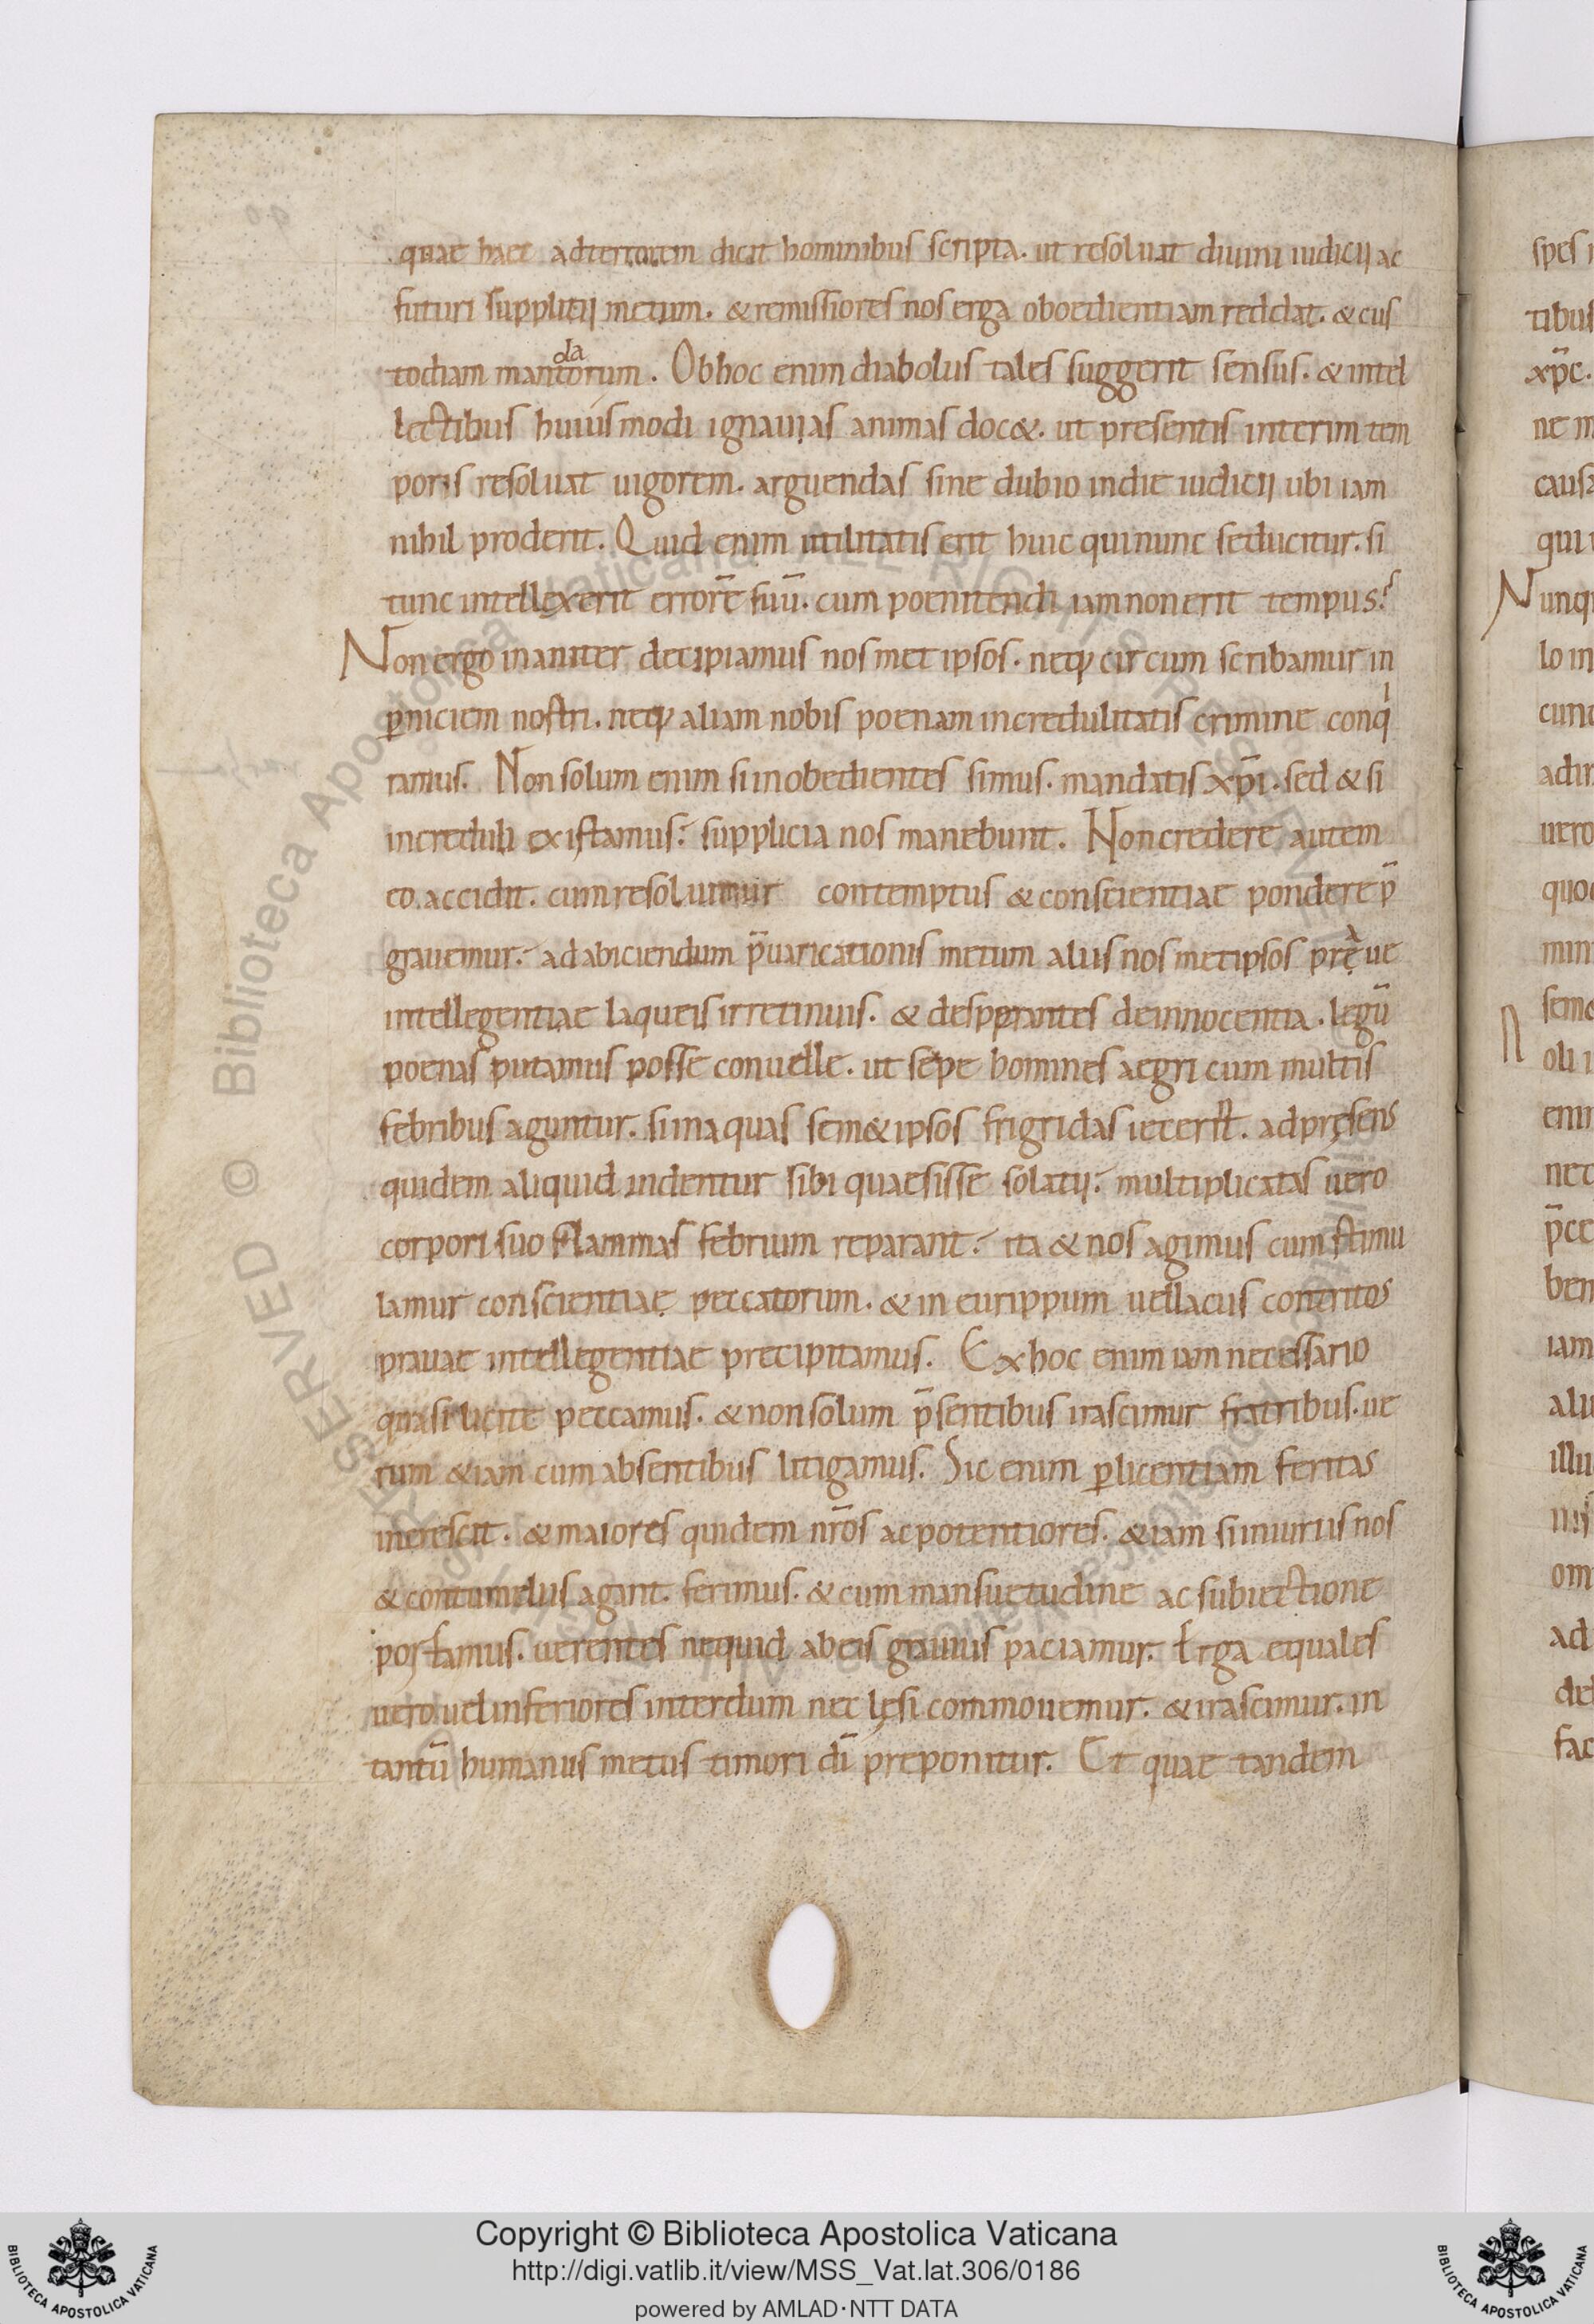 quae haec adterrorem dicit hominibus scripta. ut resoluat diuini iudicij ac
futuri supplicij metum. & remissiores nos erga oboedientiam reddat. & cus
todiam mandatorum. Obhoc enim diabolus tales suggerit sensus. & intel
lectibus huiusmodi ignauias animas doc&. ut presentis interim tem
poris resoluat uigorem. arguendas sine dubio indie iudicij ubi iam
nihil proderit. Quid enim utilitatis erit huic qui nunc seducitur. si
tunc intellexerit errorē suū. cum poenitendi iam non erit tempus?
Non ergo inaniter decipiamus nosmet ipsos. neq; circum scribamur in
p̱niciem nostri. neq; aliam nobis poenam incredulitatis crimine conqi
ramus. Non solum enim si inobedientes simus. mandatis xp̄i. sed & si
increduli existamus? supplicia nos manebunt. Non credere autem
eo accidit. cum resoluimur contemptus & conscientiae pondere p̄
grauemur. ad abiciendum p̄uaricationis metum alus nosmetipsos pręaue
intellegentiae laqueis irretimus. & desperantes deinnocentia. legū
poenas putamus posse conuelle. ut sepe homines aegri cum multis
febribus aguntur. sima quas sem&ipsos frigridas iecerit. adpręsens
quidem aliquid indentur sibi quaesisse solatij? multiplicatas uero
corpori suo flammas febrium reparant. ita & nos agimus cum stimu
lamur conscientiae peccatorum. & in eurippum uellacus contritos
prauae intellegentiae precipitamus. Ex hoc enim iam necessario
quasi licite peccamus. & non solum p̄sentibus irascimur fratribus. ue
rum &iam cum absentibus litigamus. Sic enim p̱ licentiam feritas
increscit. & maiores quidem nr̄os ac potentiores. &iam si iniuriis nos
& contumelus agant. ferimus. & cum mansuetudine ac subiectione
portamus. uerentes nequid abeis grauius paciamur. Erga equales
uero uel inferiores interdum nec lęsi commouemur. & irascimur. in
tantū humanus metus timori dī preponitur. Et quae tandem
spes
tibus
xp̄c.
causa
qui
Nunq
lo in
cunc
uero
quo
semo
oli i
enim
nec
p̄ce
ben
iam
illu
om
ad
fac
SERVED © Biblioteca Apostolica Vaticana ALL RIGHTS RESERVED
Copyright © Biblioteca Apostolica Vaticana
http://digi.vatlib.it/view/MSS_Vat.lat.306/0186
powered by AMLAD·NTT DATA
BIBLIOTECA APOSTOLICA VATICANA
BIBLIOTECA APOSTOLICA VATICANA